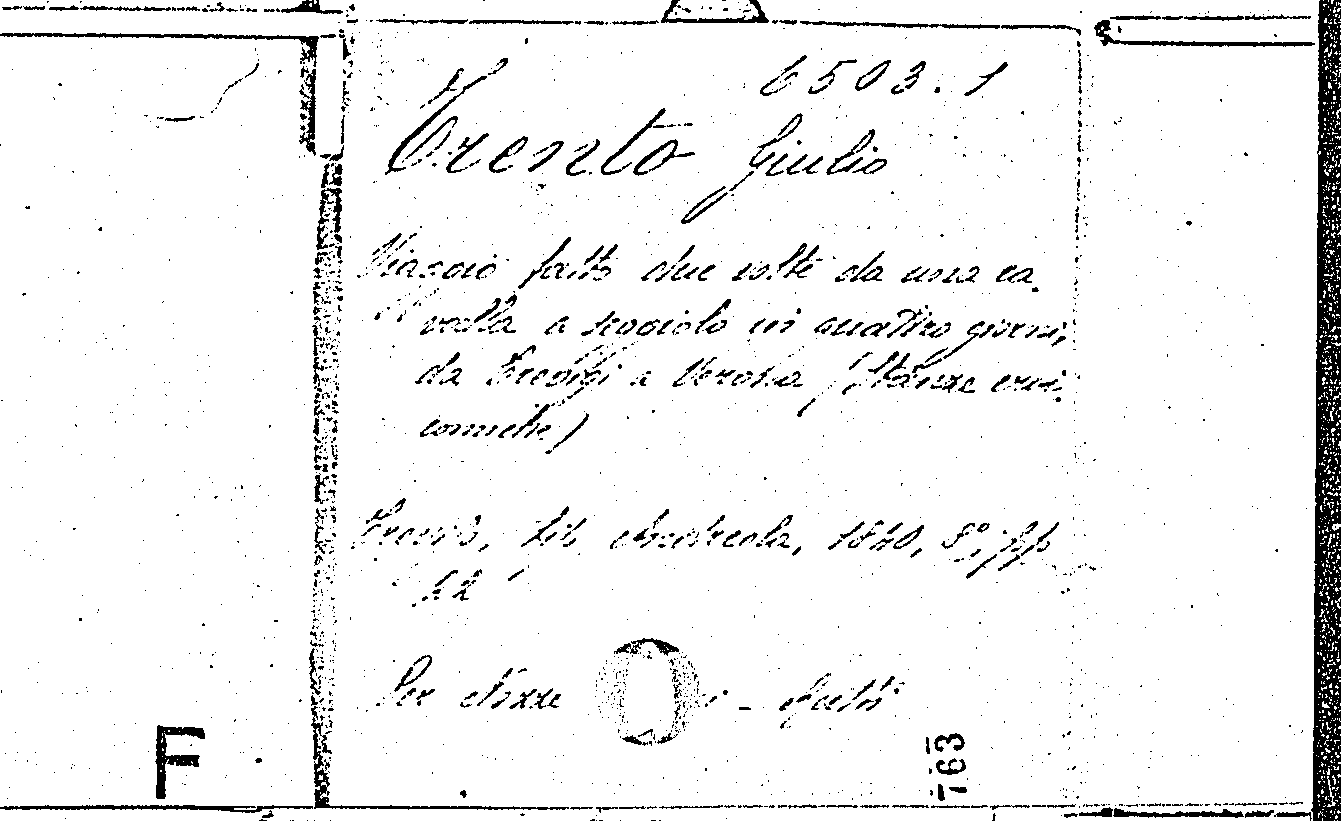 6503.1
Trento Giulio
Viaggio fatto due volte da una ca-
valla a seggiolo in quattro giorni,
da Trevigi a Verona (Stanze eroi-
comiche)
Treviso, tip. Andreola, 1840, 8°, pp
22
Per Nozze
763
F